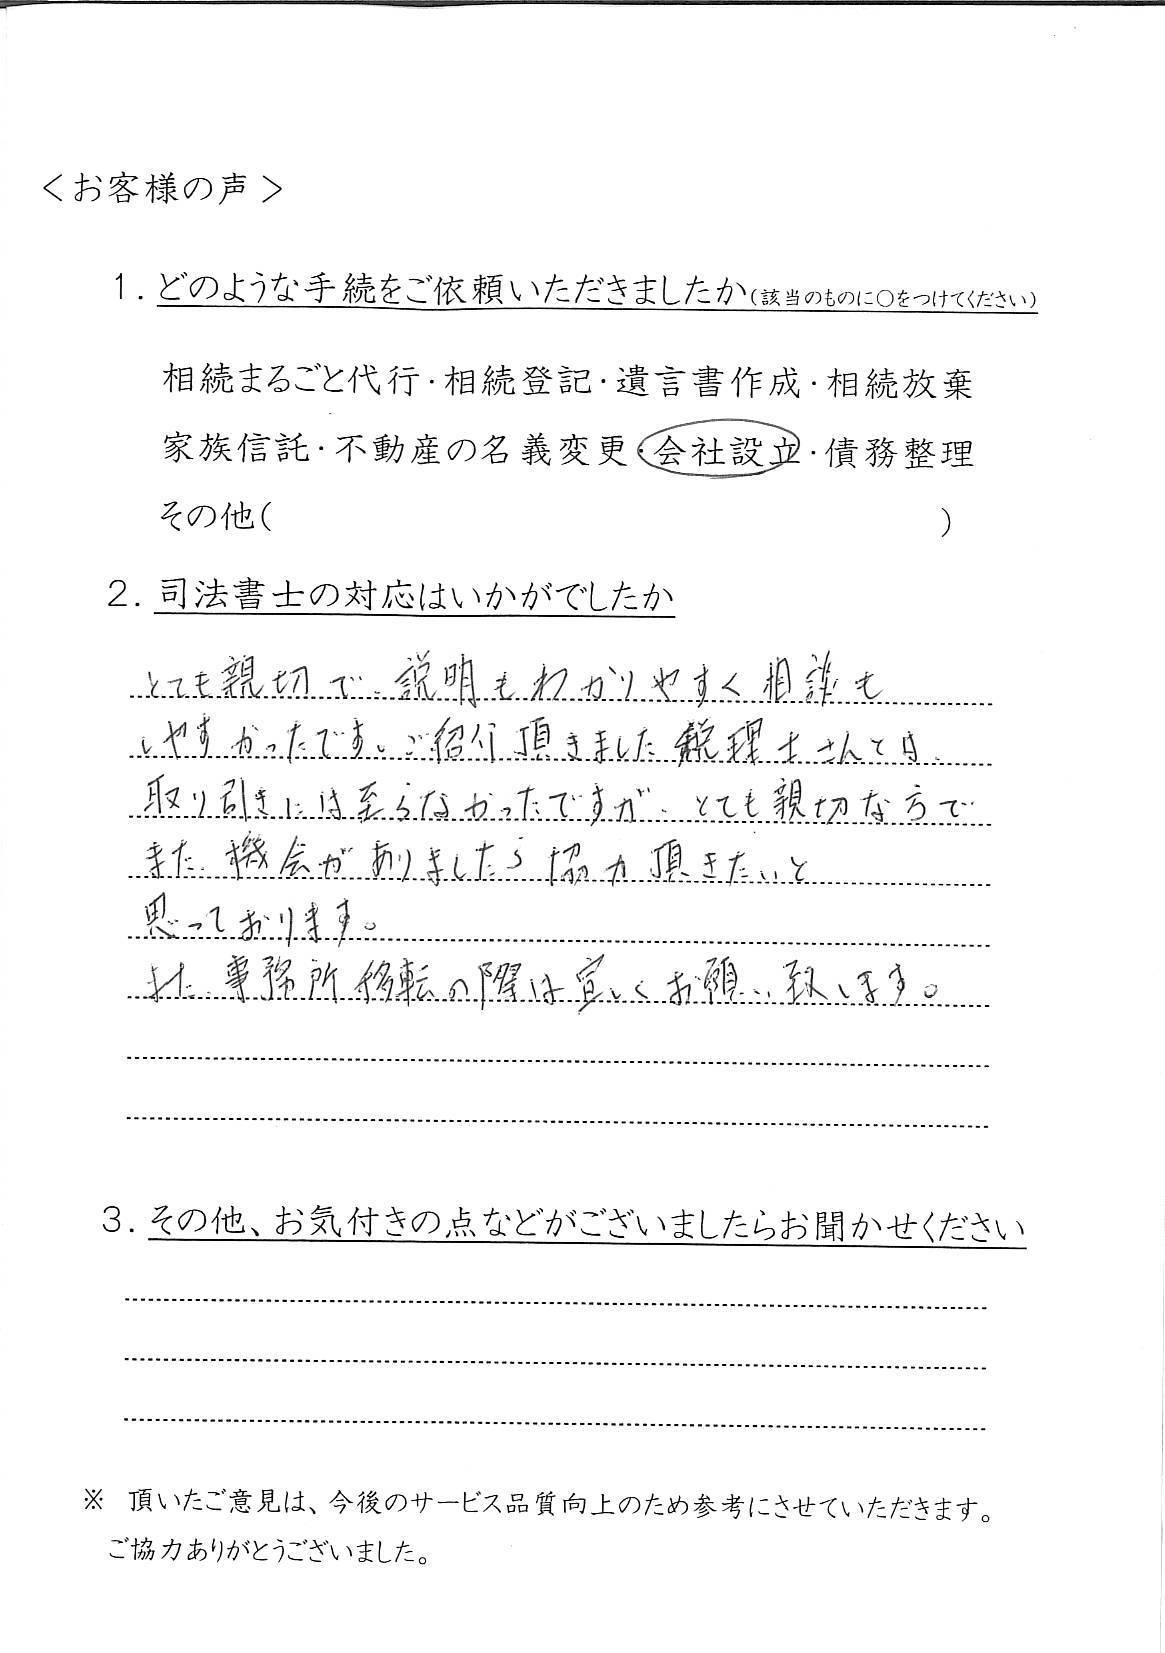 ＜お客様の声＞
1. どのような手続をご依頼いただきましたか(該当のものに○をつけてください)
相続まるごと代行・相続登記・遺言書作成・相続放棄
家族信託・不動産の名義変更・会社設立・債務整理
その他(　　　)
2. 司法書士の対応はいかがでしたか
とても親切で、説明もわかりやすく相談も
しやすかったです。ご紹介頂きました税理士さんとは、
取り引きには至らなかったですが、とても親切な方で
また、機会がありましたら協力頂きたいと
思っております。
また、事務所移転の際は宜しくお願い致します。
3. その他、お気付きの点などがございましたらお聞かせください
※　頂いたご意見は、今後のサービス品質向上のため参考にさせていただきます。
ご協力ありがとうございました。